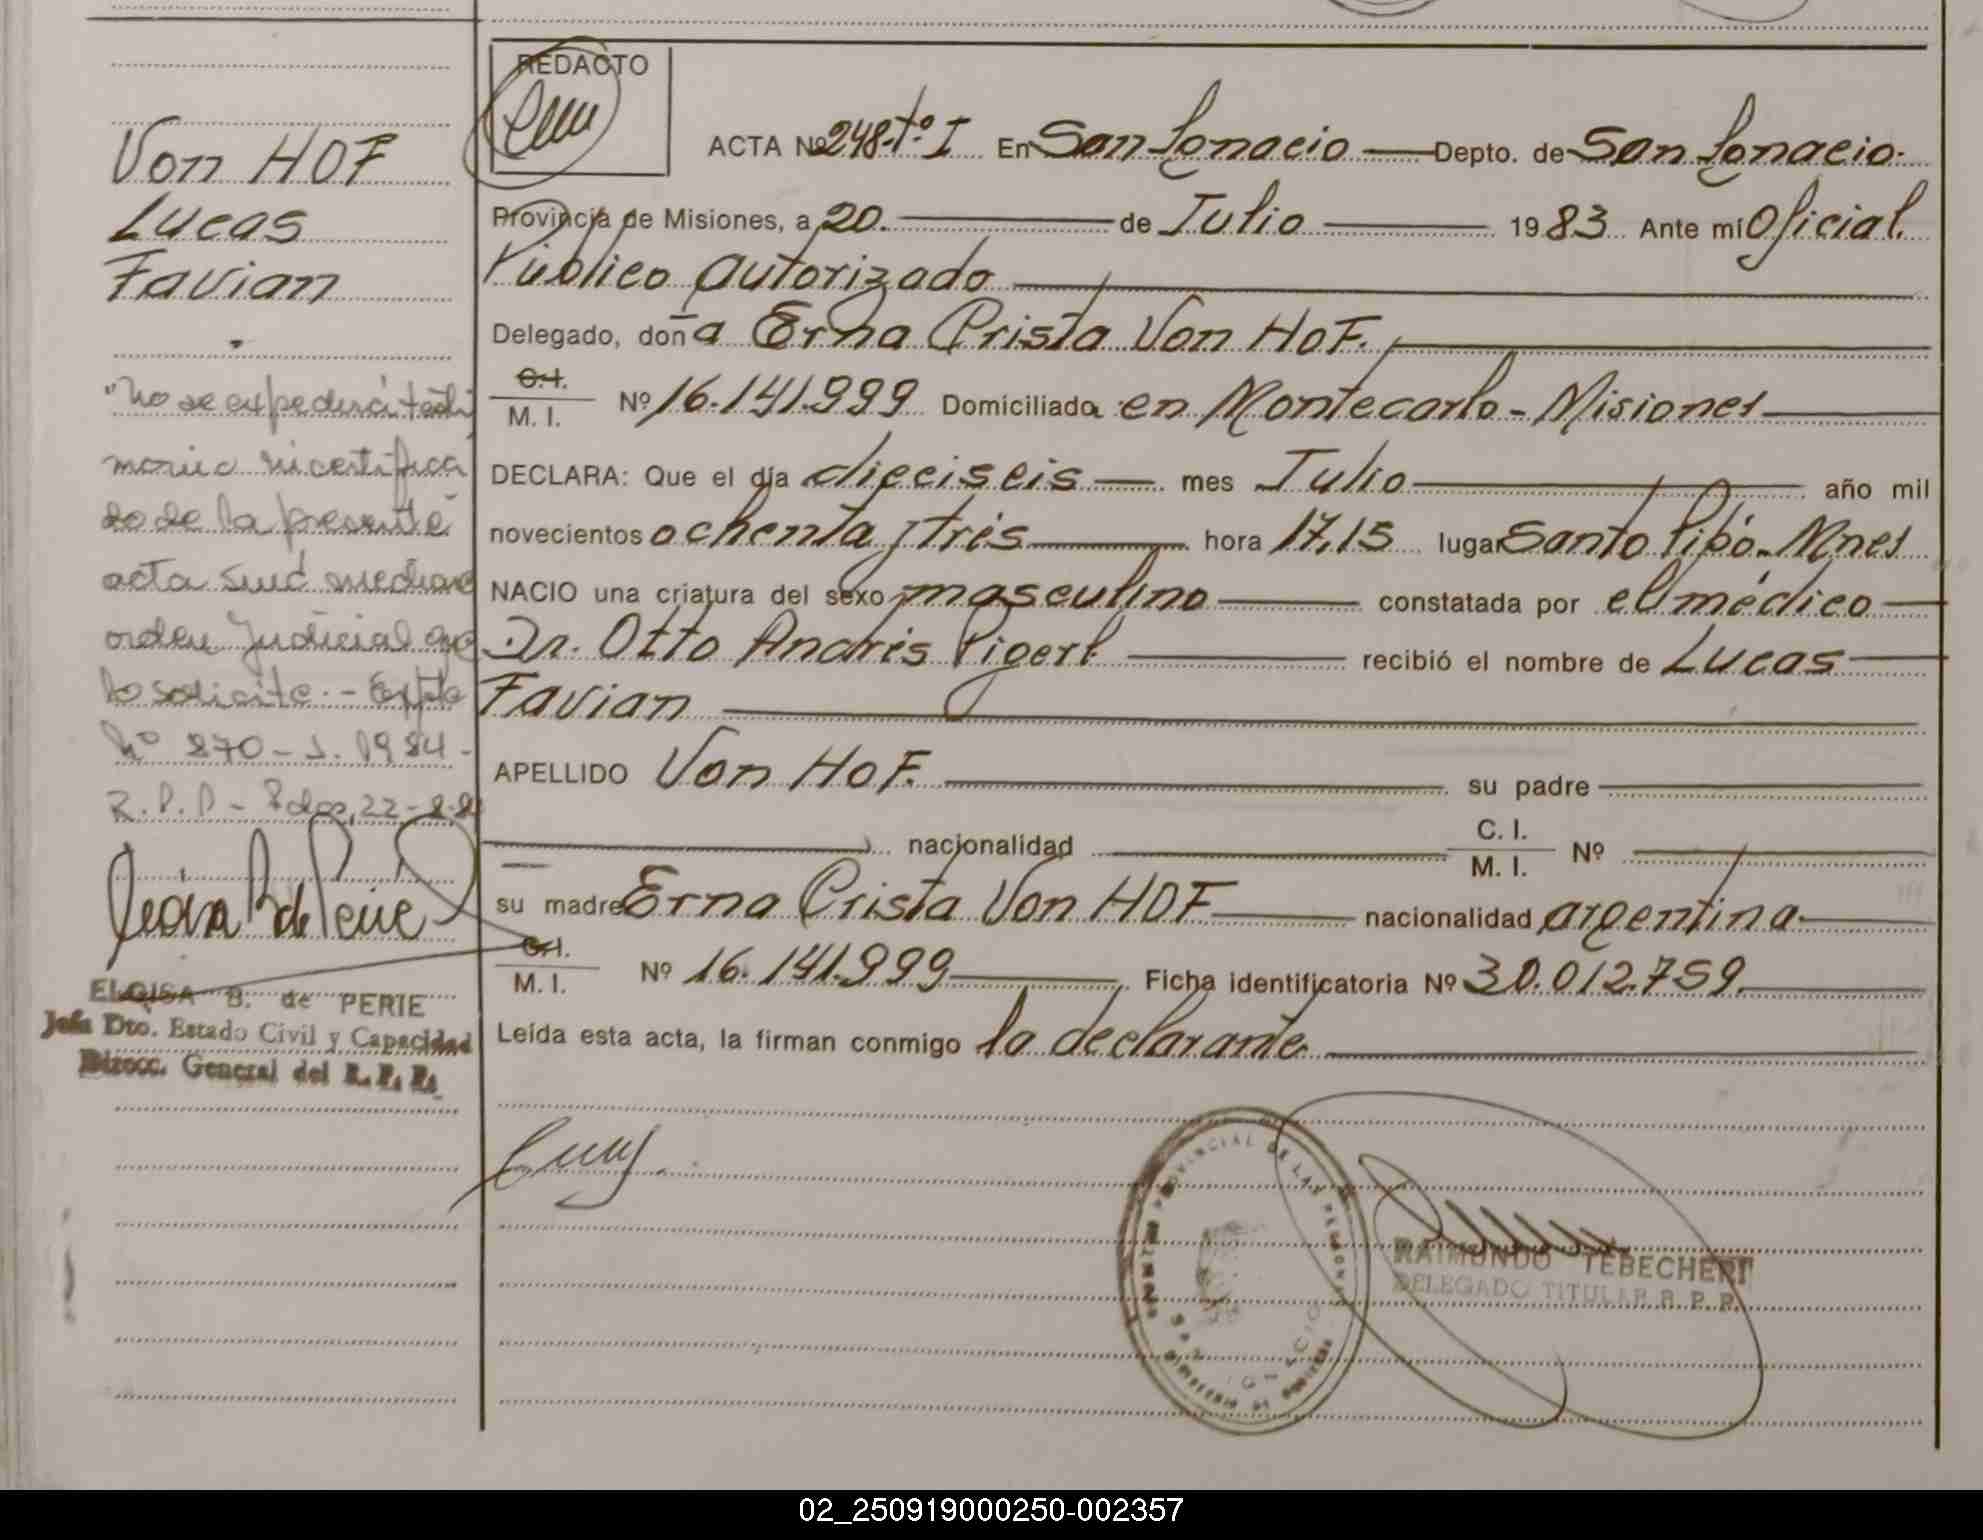 REDACTO
ACTA Nº 248-tº I En San Ignacio Depto. de San Ignacio.
Provincia de Misiones, a 20. de Julio 1983 Ante mi Oficial
Público Autorizado
Delegado, doña Erna Crista Von HoF.
C.I. M. I. Nº 16.141.999 Domiciliada en Montecarlo - Misiones
DECLARA: Que el día dieciseis mes Julio año mil
novecientos ochenta y tres hora 17,15 lugar Santo Pipó - Mnes
NACIO una criatura del sexo masculino constatada por el médico
Dr. Otto Andrés Pigerl recibió el nombre de Lucas
Favian
APELLIDO Von HoF. su padre
nacionalidad C. I. M. I. Nº
su madre Erna Crista Von HOF nacionalidad argentina
C.I. M. I. Nº 16.141.999 Ficha identificatoria Nº 30.012.759
Leída esta acta, la firman conmigo la declarante
Von HOF
Lucas
Favian
"No se expedirá testi
monio ni certifica
do de la presente
acta sinó mediante
orden Judicial que
lo solicite.- Expte
Nº 870-S. 1984-
R.P.P - Pdas, 22-8-84
ELOISA B. de PERIE
Jefa Dto. Estado Civil y Capacidad
Direcc. General del R. P. P.
PROVINCIAL DE LAS PERSONAS
SAN IGNACIO
RAIMUNDO TEBECHERI
DELEGADO TITULAR R. P. P.
02_250919000250-002357